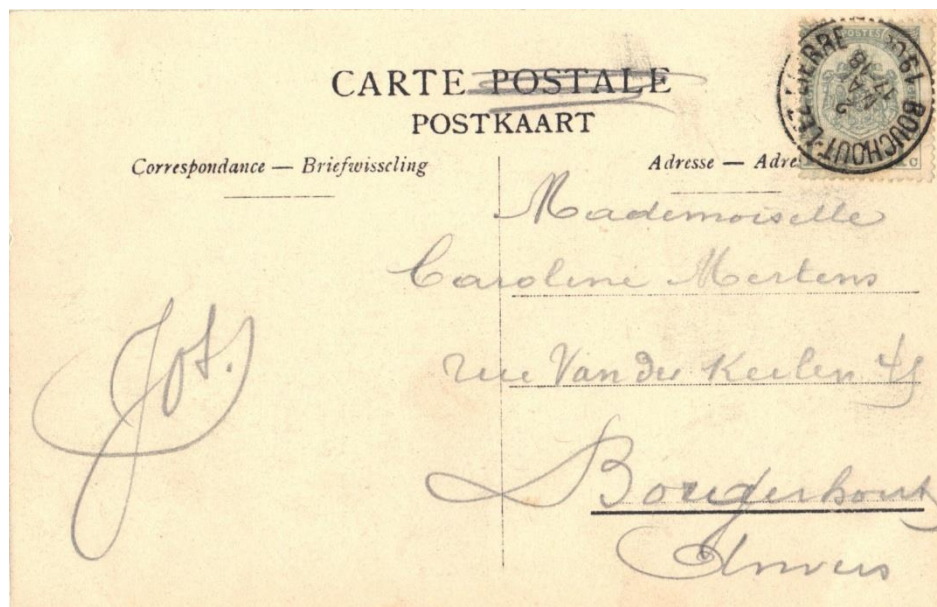 CARTE POSTALE
POSTKAART
Correspondance — Briefwisseling
Adresse — Adre
POSTES
BOUCHOUT-LEZ-LIERRE
Mademoiselle
Caroline Mertens
rue Van der Keilen
Borgerhout
Anvers
Jos.